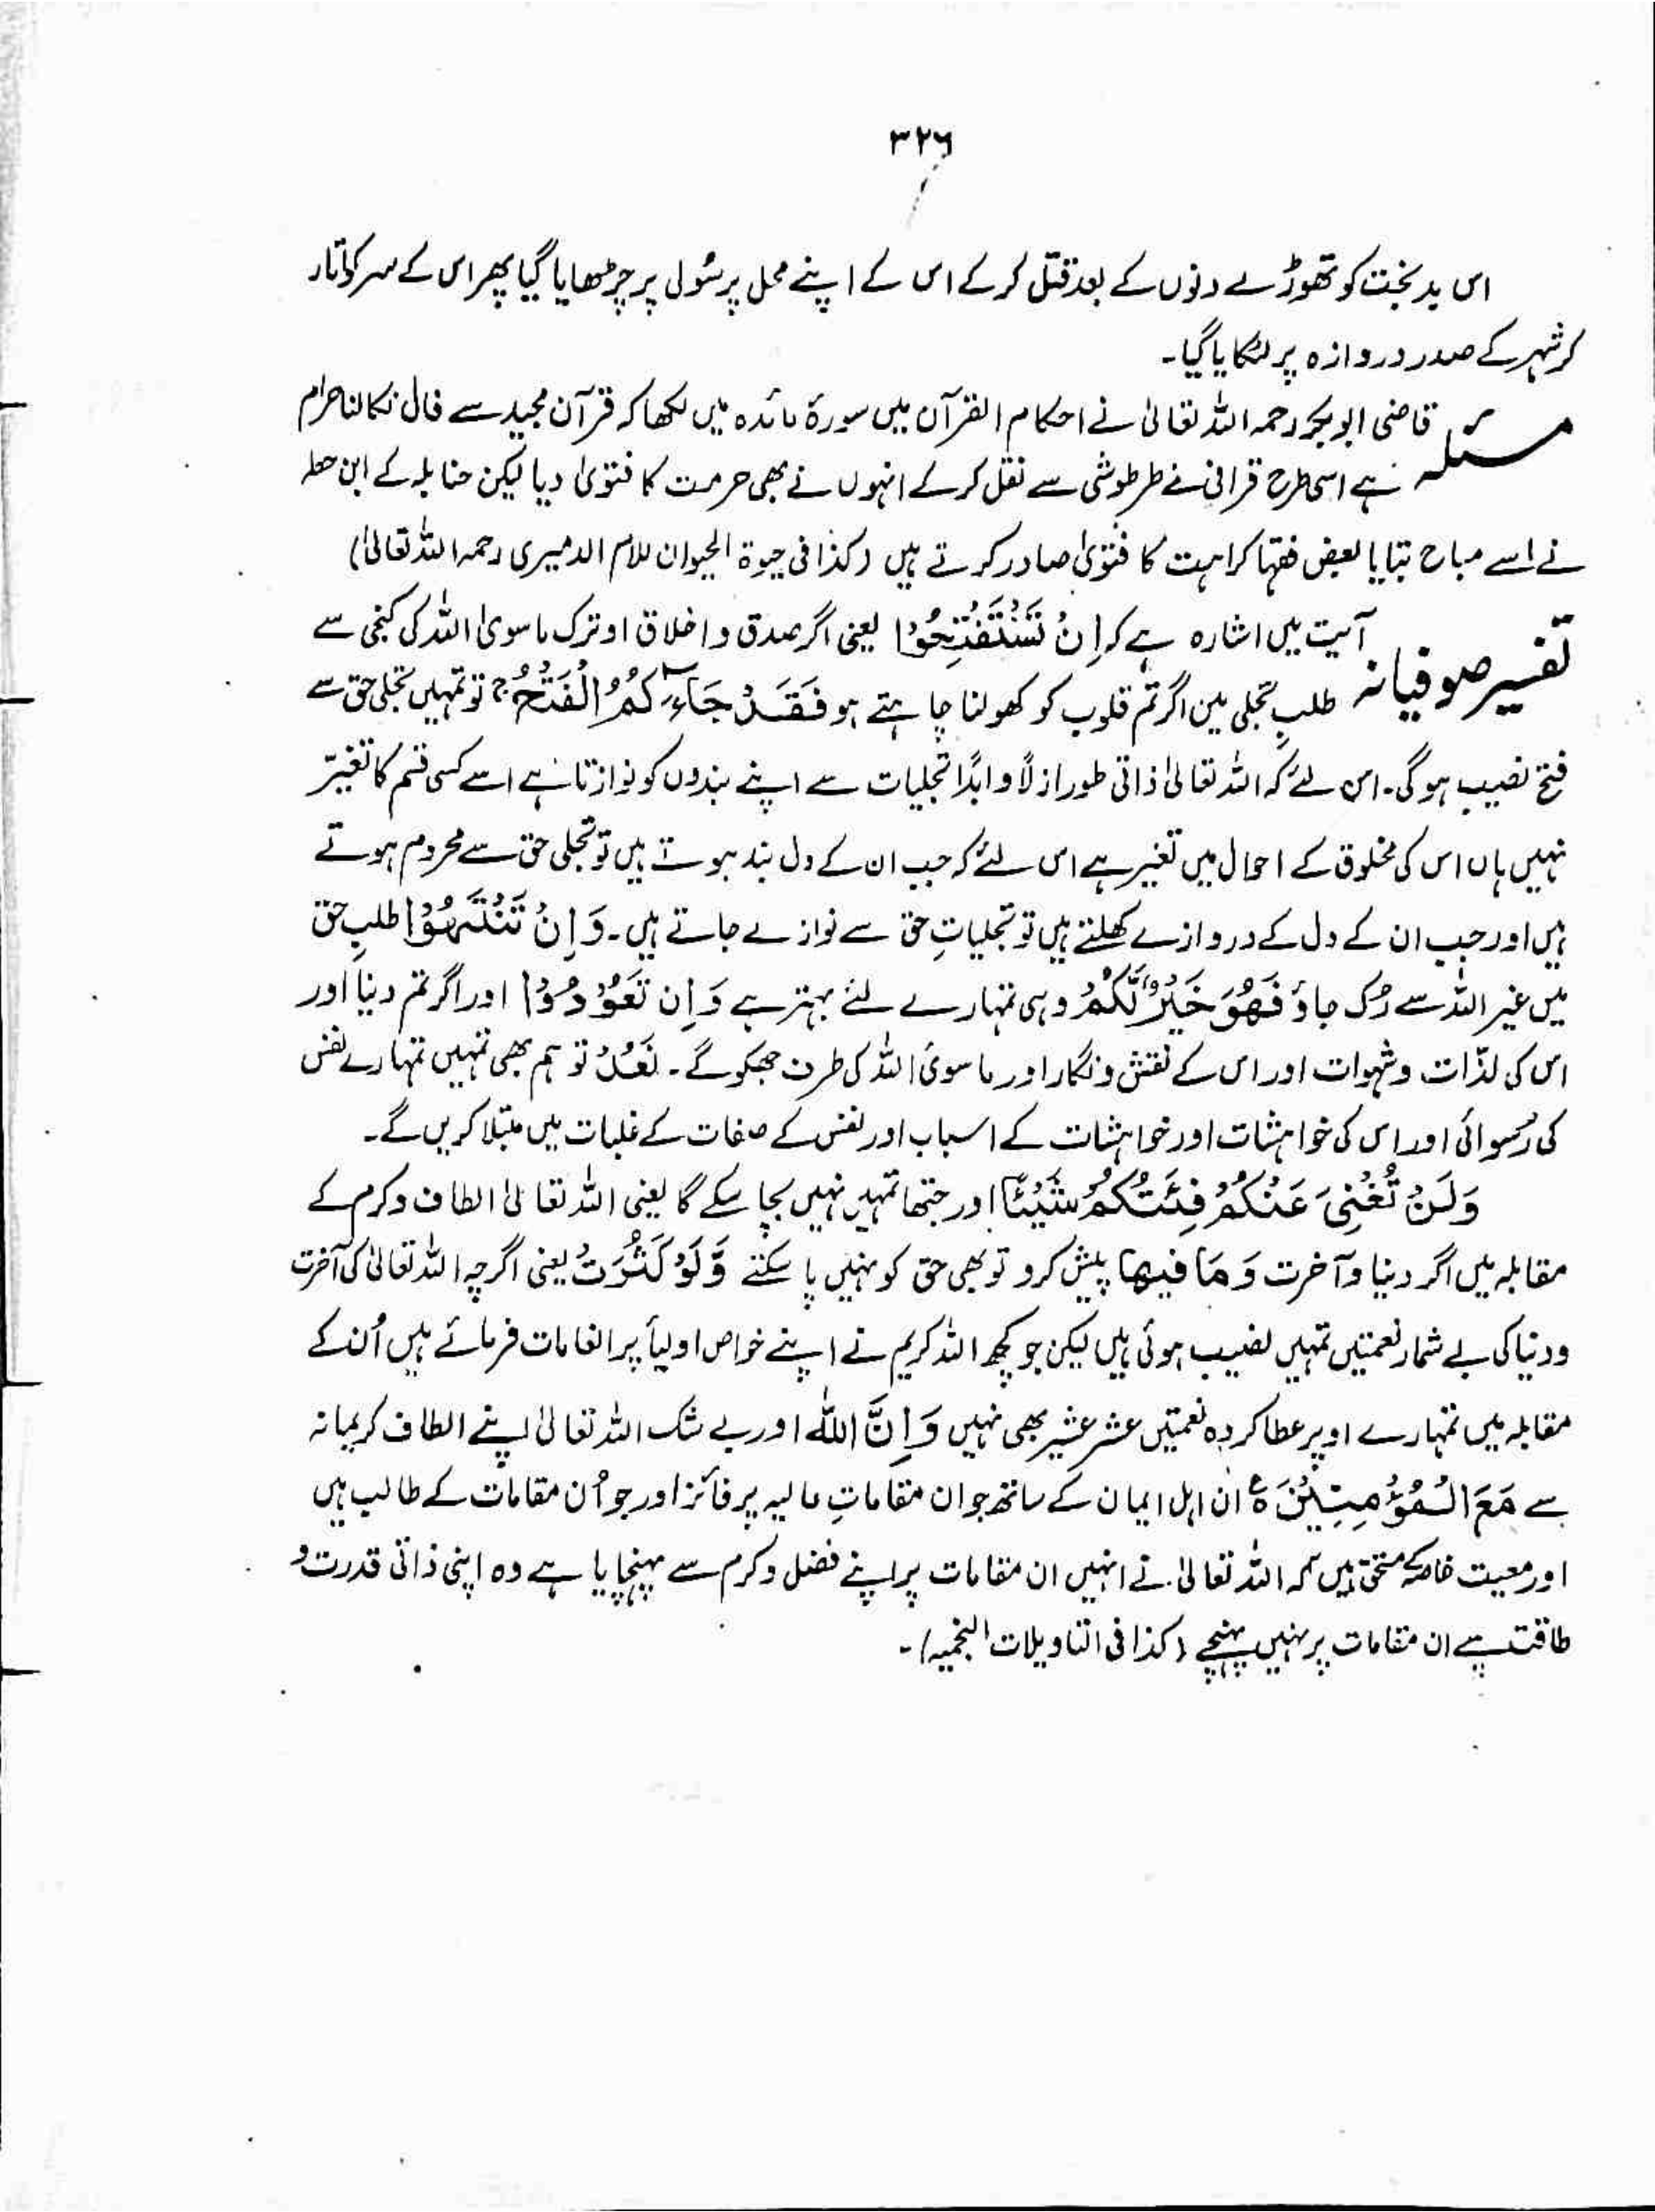 ۳۲۶
اس بدبخت کو تھوڑے دنوں کے بعد قتل کر کے اس کے اپنے محل پر سُولی پر چڑھایا گیا پھر اس کے سر کو اتار
کر شہر کے صدر دروازہ پر لٹکایا گیا۔
مسئلہ قاضی ابوبکر رحمہ اللہ تعالیٰ نے احکام القرآن میں سورۃ مائدہ میں لکھا کہ قرآن مجید سے فال نکالنا حرام
ہے اسی طرح قرافی نے طرطوشی سے نقل کر کے انہوں نے بھی حرمت کا فتویٰ دیا لیکن حنابلہ کے ابن حطہ
نے اسے مباح بتایا بعض فقہا کراہت کا فتویٰ صادر کرتے ہیں (کذا فی حیوۃ الحیوان للامام الدمیری رحمہ اللہ تعالیٰ)
تفسیر صوفیانہ آیت میں اشارہ ہے کہ اِنْ تَسْتَفْتِحُوْا یعنی اگر صدق و اخلاق او ترک ماسویٰ اللہ کی کنجی سے
طلبِ تجلی میں اگر تم قلوب کو کھولنا چاہتے ہو فَقَدْ جَآءَکُمُ الْفَتْحُ ج تو تمہیں تجلی حق سے
فتح نصیب ہوگی۔ اس لئے کہ اللہ تعالیٰ ذاتی طور ازلاً و ابداً تجلیات سے اپنے بندوں کو نوازتا ہے اسے کسی قسم کا تغیّر
نہیں ہاں اس کی مخلوق کے احوال میں تغیر ہے اس لئے کہ جب ان کے دل بند ہوتے ہیں تو تجلی حق سے محروم ہوتے
ہیں اور جب ان کے دل کے دروازے کھلتے ہیں تو تجلیاتِ حق سے نوازے جاتے ہیں۔ وَ اِنْ تَنْتَهُوْا طلبِ حق
میں غیر اللہ سے رُک جاؤ فَهُوَ خَیْرٌ لَّکُمْ وہی تمہارے لئے بہتر ہے وَ اِن تَعُوْدُوْا اور اگر تم دنیا اور
اس کی لذّات و شہوات اور اس کے نقش و نگار اور ماسویٰ اللہ کی طرف جھکو گے۔ نَعُدْ تو ہم بھی تمہیں تمہارے نفس
کی رُسوائی اور اس کی خواہشات اور خواہشات کے اسباب اور نفس کے صفات کے غلبات میں مبتلا کریں گے۔
وَ لَنْ تُغْنِیَ عَنْکُمْ فِئَتُکُمْ شَیْئًا اور جتھا تمہیں نہیں بچا سکے گا یعنی اللہ تعالیٰ الطاف و کرم کے
مقابلہ میں اگر دنیا و آخرت وَ مَا فیها پیش کرو تو بھی حق کو نہیں پا سکتے وَّ لَوْ کَثُرَتْ یعنی اگرچہ اللہ تعالیٰ کی آخرت
و دنیا کی بے شمار نعمتیں تمہیں نصیب ہوئی ہیں لیکن جو کچھ اللہ کریم نے اپنے خواص اولیأ پر انعامات فرمائے ہیں اُن کے
مقابلہ میں تمہارے اوپر عطا کردہ نعمتیں عشر عشیر بھی نہیں وَ اِنَّ اللّٰه اور بے شک اللہ تعالیٰ اپنے الطاف کریمانہ
سے مَعَ الْمُؤْمِنِیْنَ ہ ع ان اہل ایمان کے ساتھ جو ان مقاماتِ عالیہ پر فائز اور جو اُن مقامات کے طالب ہیں
اور معیت خاصہ کے مستحق ہیں کہ اللہ تعالیٰ نے انہیں ان مقامات پر اپنے فضل و کرم سے پہنچایا ہے وہ اپنی ذاتی قدرت و
طاقت سے ان مقامات پر نہیں پہنچے (کذا فی التاویلات النجمیہ)۔